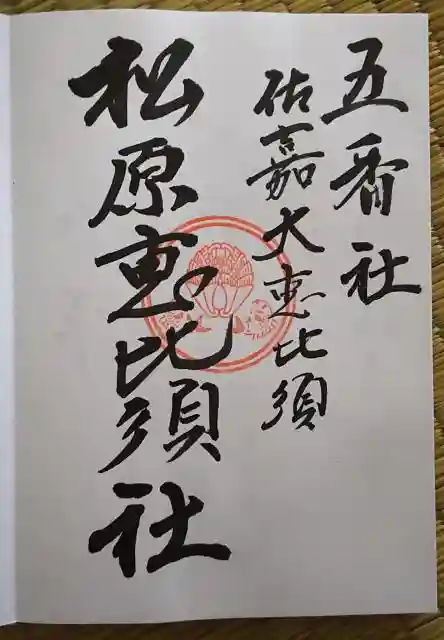 五番社
佐嘉大恵比須
松原恵比須社